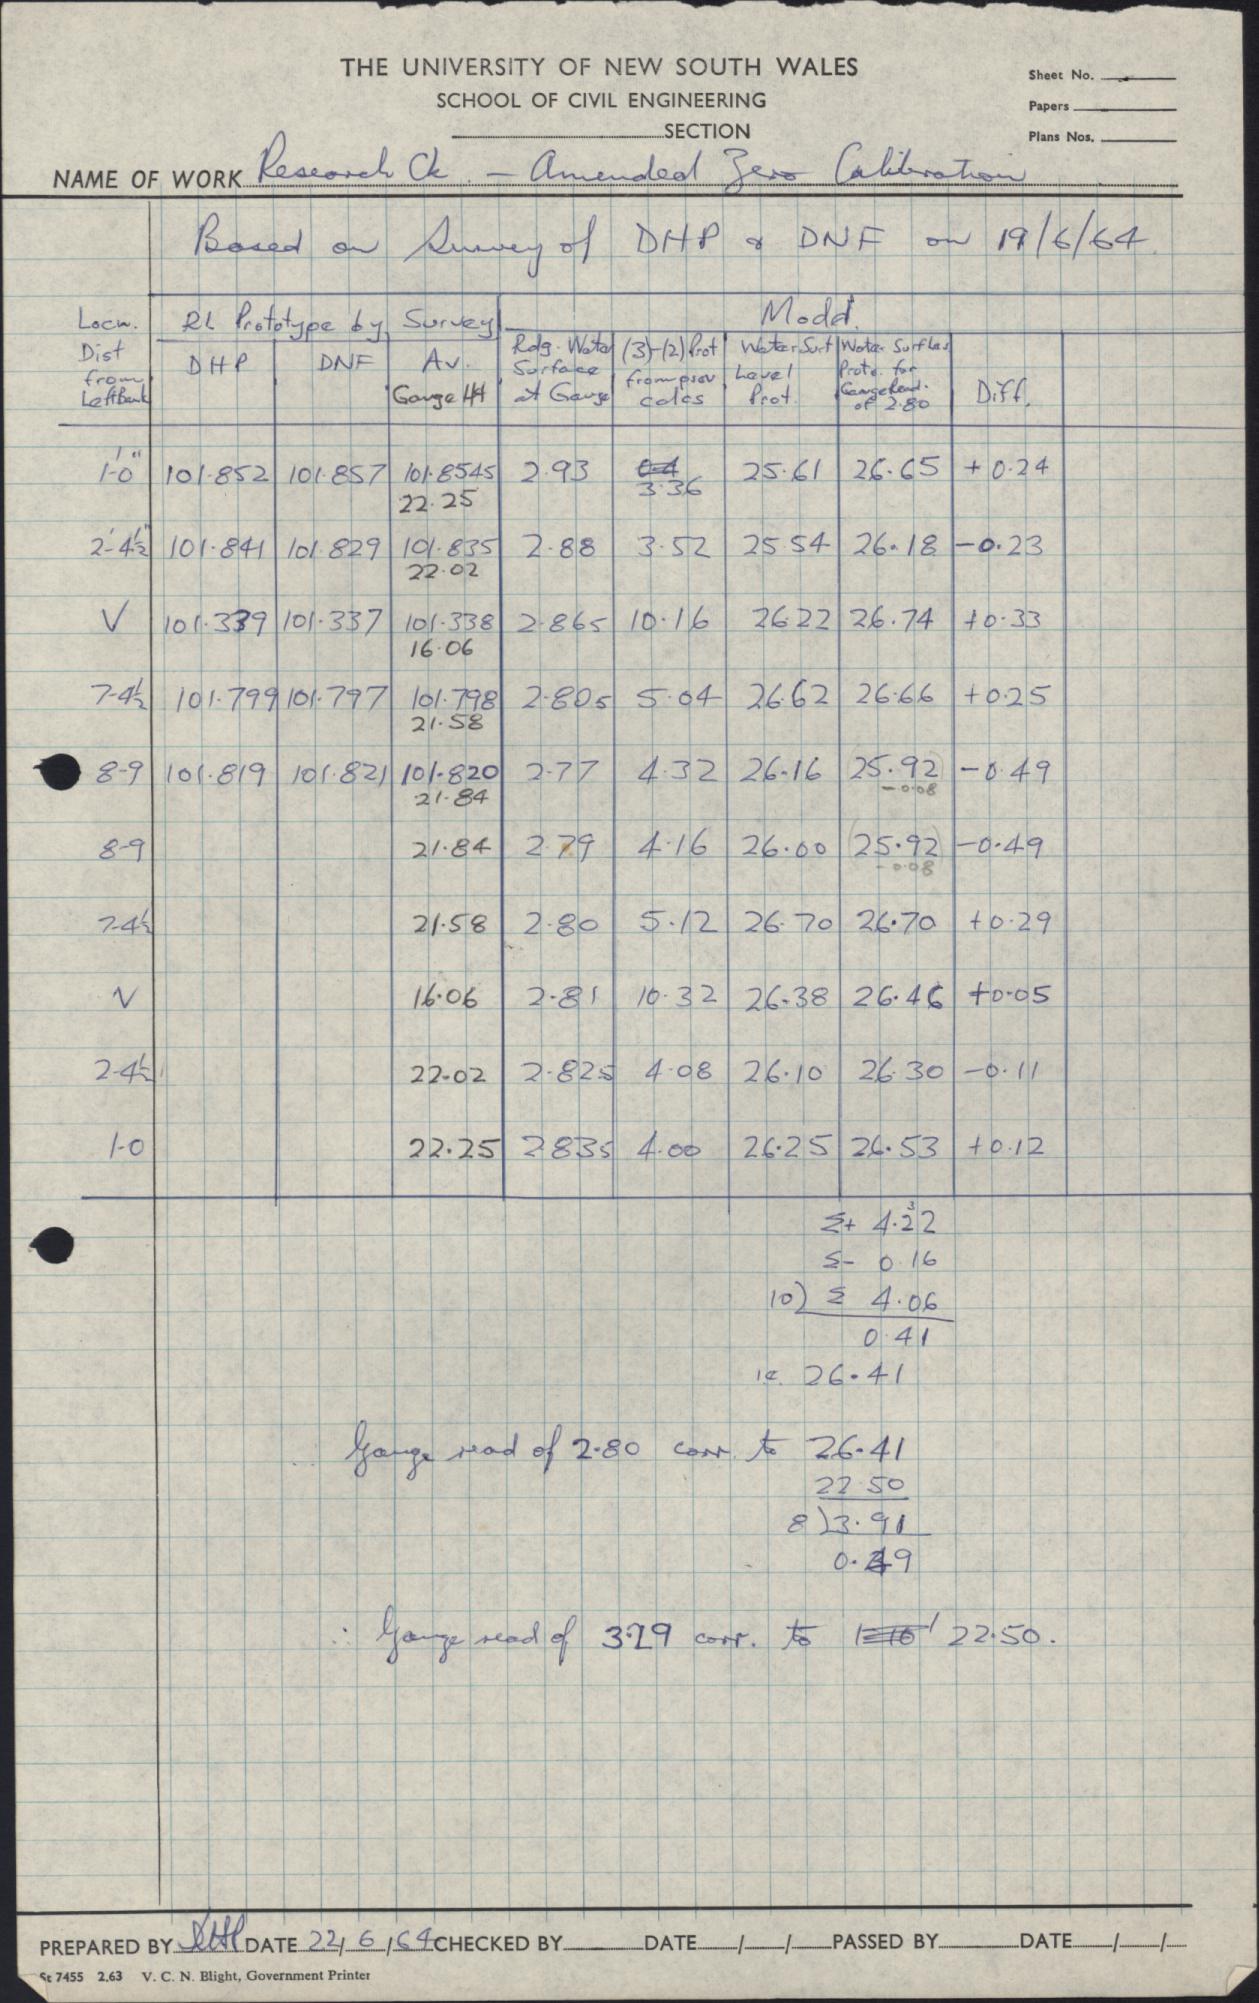 THE UNIVERSITY OF NEW SOUTH WALES
SCHOOL OF CIVIL ENGINEERING
SECTION
Sheet No.
Papers
Plans Nos.
NAME OF WORK Research Ck. - Amended Zero Calibration
Based on Survey of DHP & DNF on 19/6/64.
Locn. Dist from Left Bank | RL Prototype by Survey | Model
DHP | DNF | Av. Gauge Ht | Rdg. Water Surface at Gauge | (3)-(2) Prot from prev calcs | Water Surf Level Prot. | Water Surf Lev Proto. for Gauge Read. of 2.80 | Diff.
1'-0" 101.852 101.857 101.8545 2.93 3.36 25.61 26.65 +0.24
22.25
2'-4½" 101.841 101.829 101.835 2.88 3.52 25.54 26.18 -0.23
22.02
V 101.339 101.337 101.338 2.865 10.16 26.22 26.74 +0.33
16.06
7-4½ 101.799 101.797 101.798 2.805 5.04 26.62 26.66 +0.25
21.58
8-9 101.819 101.821 101.820 2.77 4.32 26.16 (25.92) -0.49
21.84 -0.08
8-9 21.84 2.79 4.16 26.00 (25.92) -0.49
-0.08
7-4½ 21.58 2.80 5.12 26.70 26.70 +0.29
V 16.06 2.81 10.32 26.38 26.46 +0.05
2-4½ 22.02 2.825 4.08 26.10 26.30 -0.11
1-0 22.25 2.835 4.00 26.25 26.53 +0.12
Σ+ 4.22
3
Σ- 0.16
10) Σ 4.06
0.41
ie. 26.41
Gauge read of 2.80 corr. to 26.41
22.50
8)3.91
0.49
∴ Gauge read of 3.29 corr. to 22.50.
PREPARED BY DHP DATE 22/6/64 CHECKED BY DATE / / PASSED BY DATE / /
St 7455 2.63 V. C. N. Blight, Government Printer